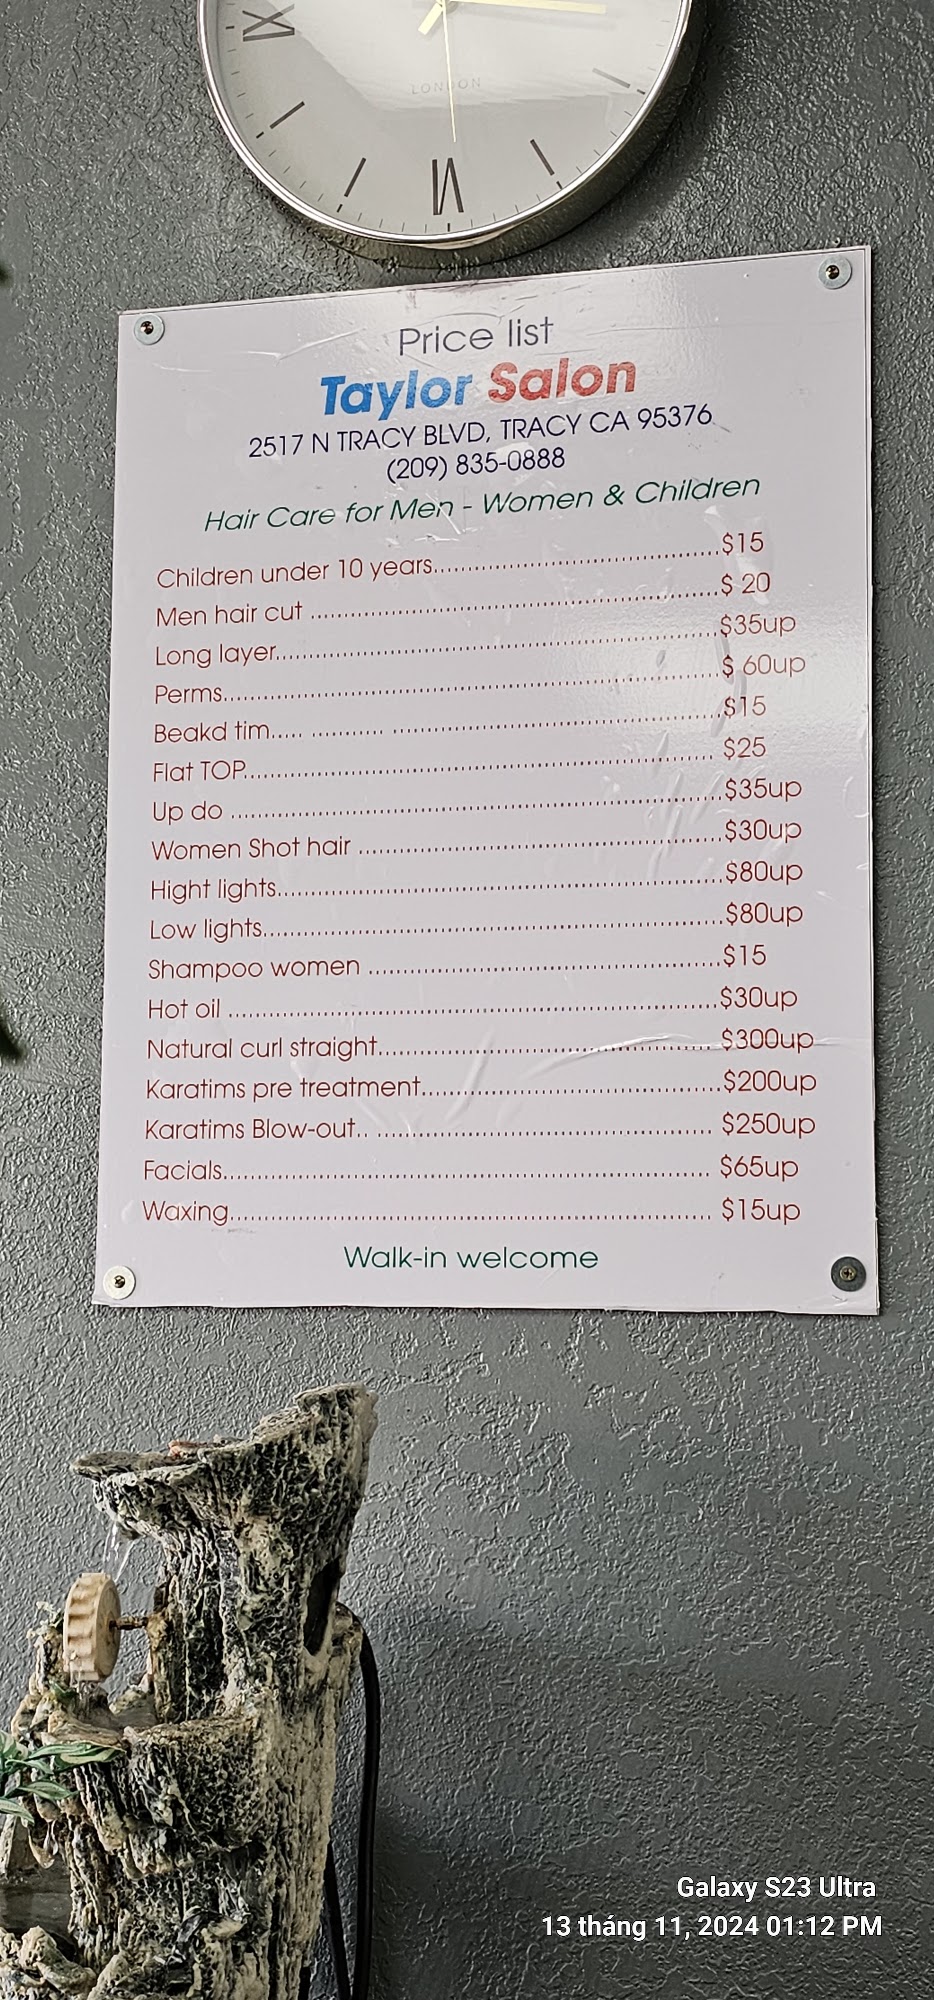 LONDON
IX
VI
Price list
Taylor Salon
2517 N TRACY BLVD, TRACY CA 95376
(209) 835-0888
Hair Care for Men - Women & Children
Children under 10 years....................................$15
Men hair cut ....................................................$ 20
Long layer........................................................$35up
Perms................................................................$ 60up
Beakd tim..... ........... ..................................$15
Flat TOP............................................................ $25
Up do ...............................................................$35up
Women Shot hair ..............................................$30up
Hight lights........................................................$80up
Low lights..........................................................$80up
Shampoo women .............................................$15
Hot oil ...............................................................$30up
Natural curl straight..........................................$300up
Karatims pre treatment.....................................$200up
Karatims Blow-out.. .......................................... $250up
Facials............................................................... $65up
Waxing.............................................................. $15up
Walk-in welcome
Galaxy S23 Ultra
13 tháng 11, 2024 01:12 PM